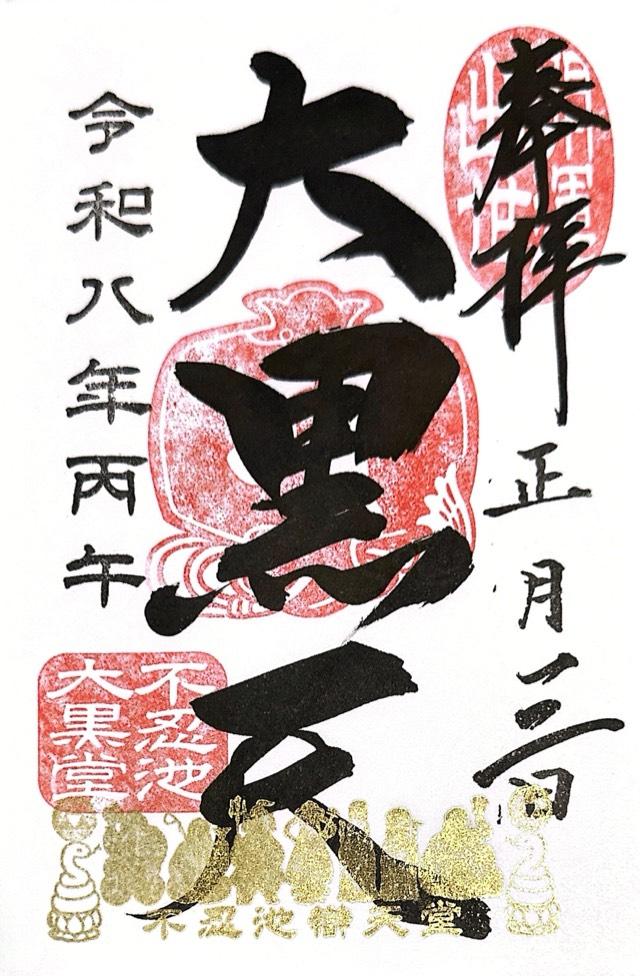 奉拝
正月三日
開運
出世
大黒天
令和八年丙午
不忍池
大黒堂
不忍池辯天堂